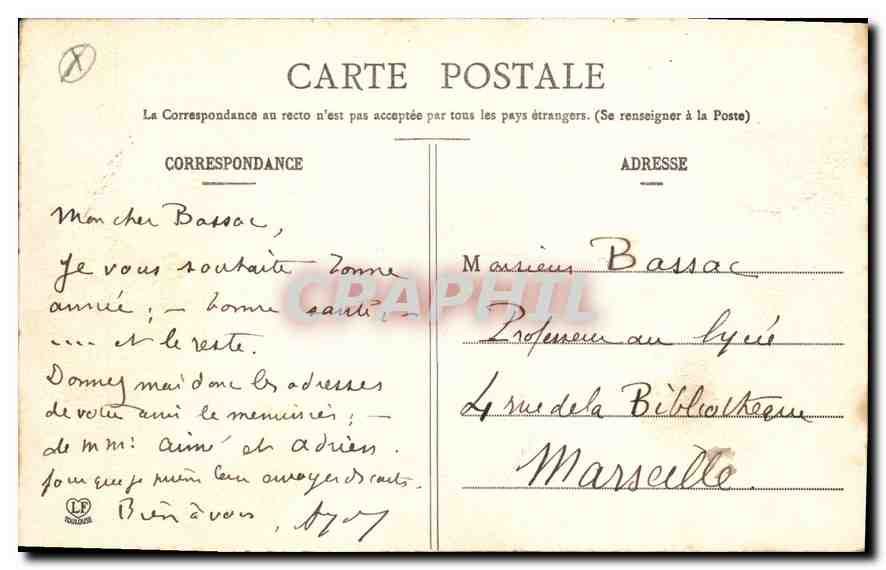 X
CARTE POSTALE
La Correspondance au recto n'est pas acceptée par tous les pays étrangers. (Se renseigner à la Poste)
CORRESPONDANCE
Mon cher Bassac,
Je vous souhaite bonne
année ; – bonne santé, –
.... et le reste.
Donnez moi donc les adresses
de votre ami le menuisier ; –
de MMrs Aimé et Adrien.
pour que je puisse leur envoyer des cartes.
Bien à vous,
LF
TOULOUSE
ADRESSE
Monsieur Bassac
Professeur au lycée
4 rue de la Bibliothèque
Marseille
CPAPHIL